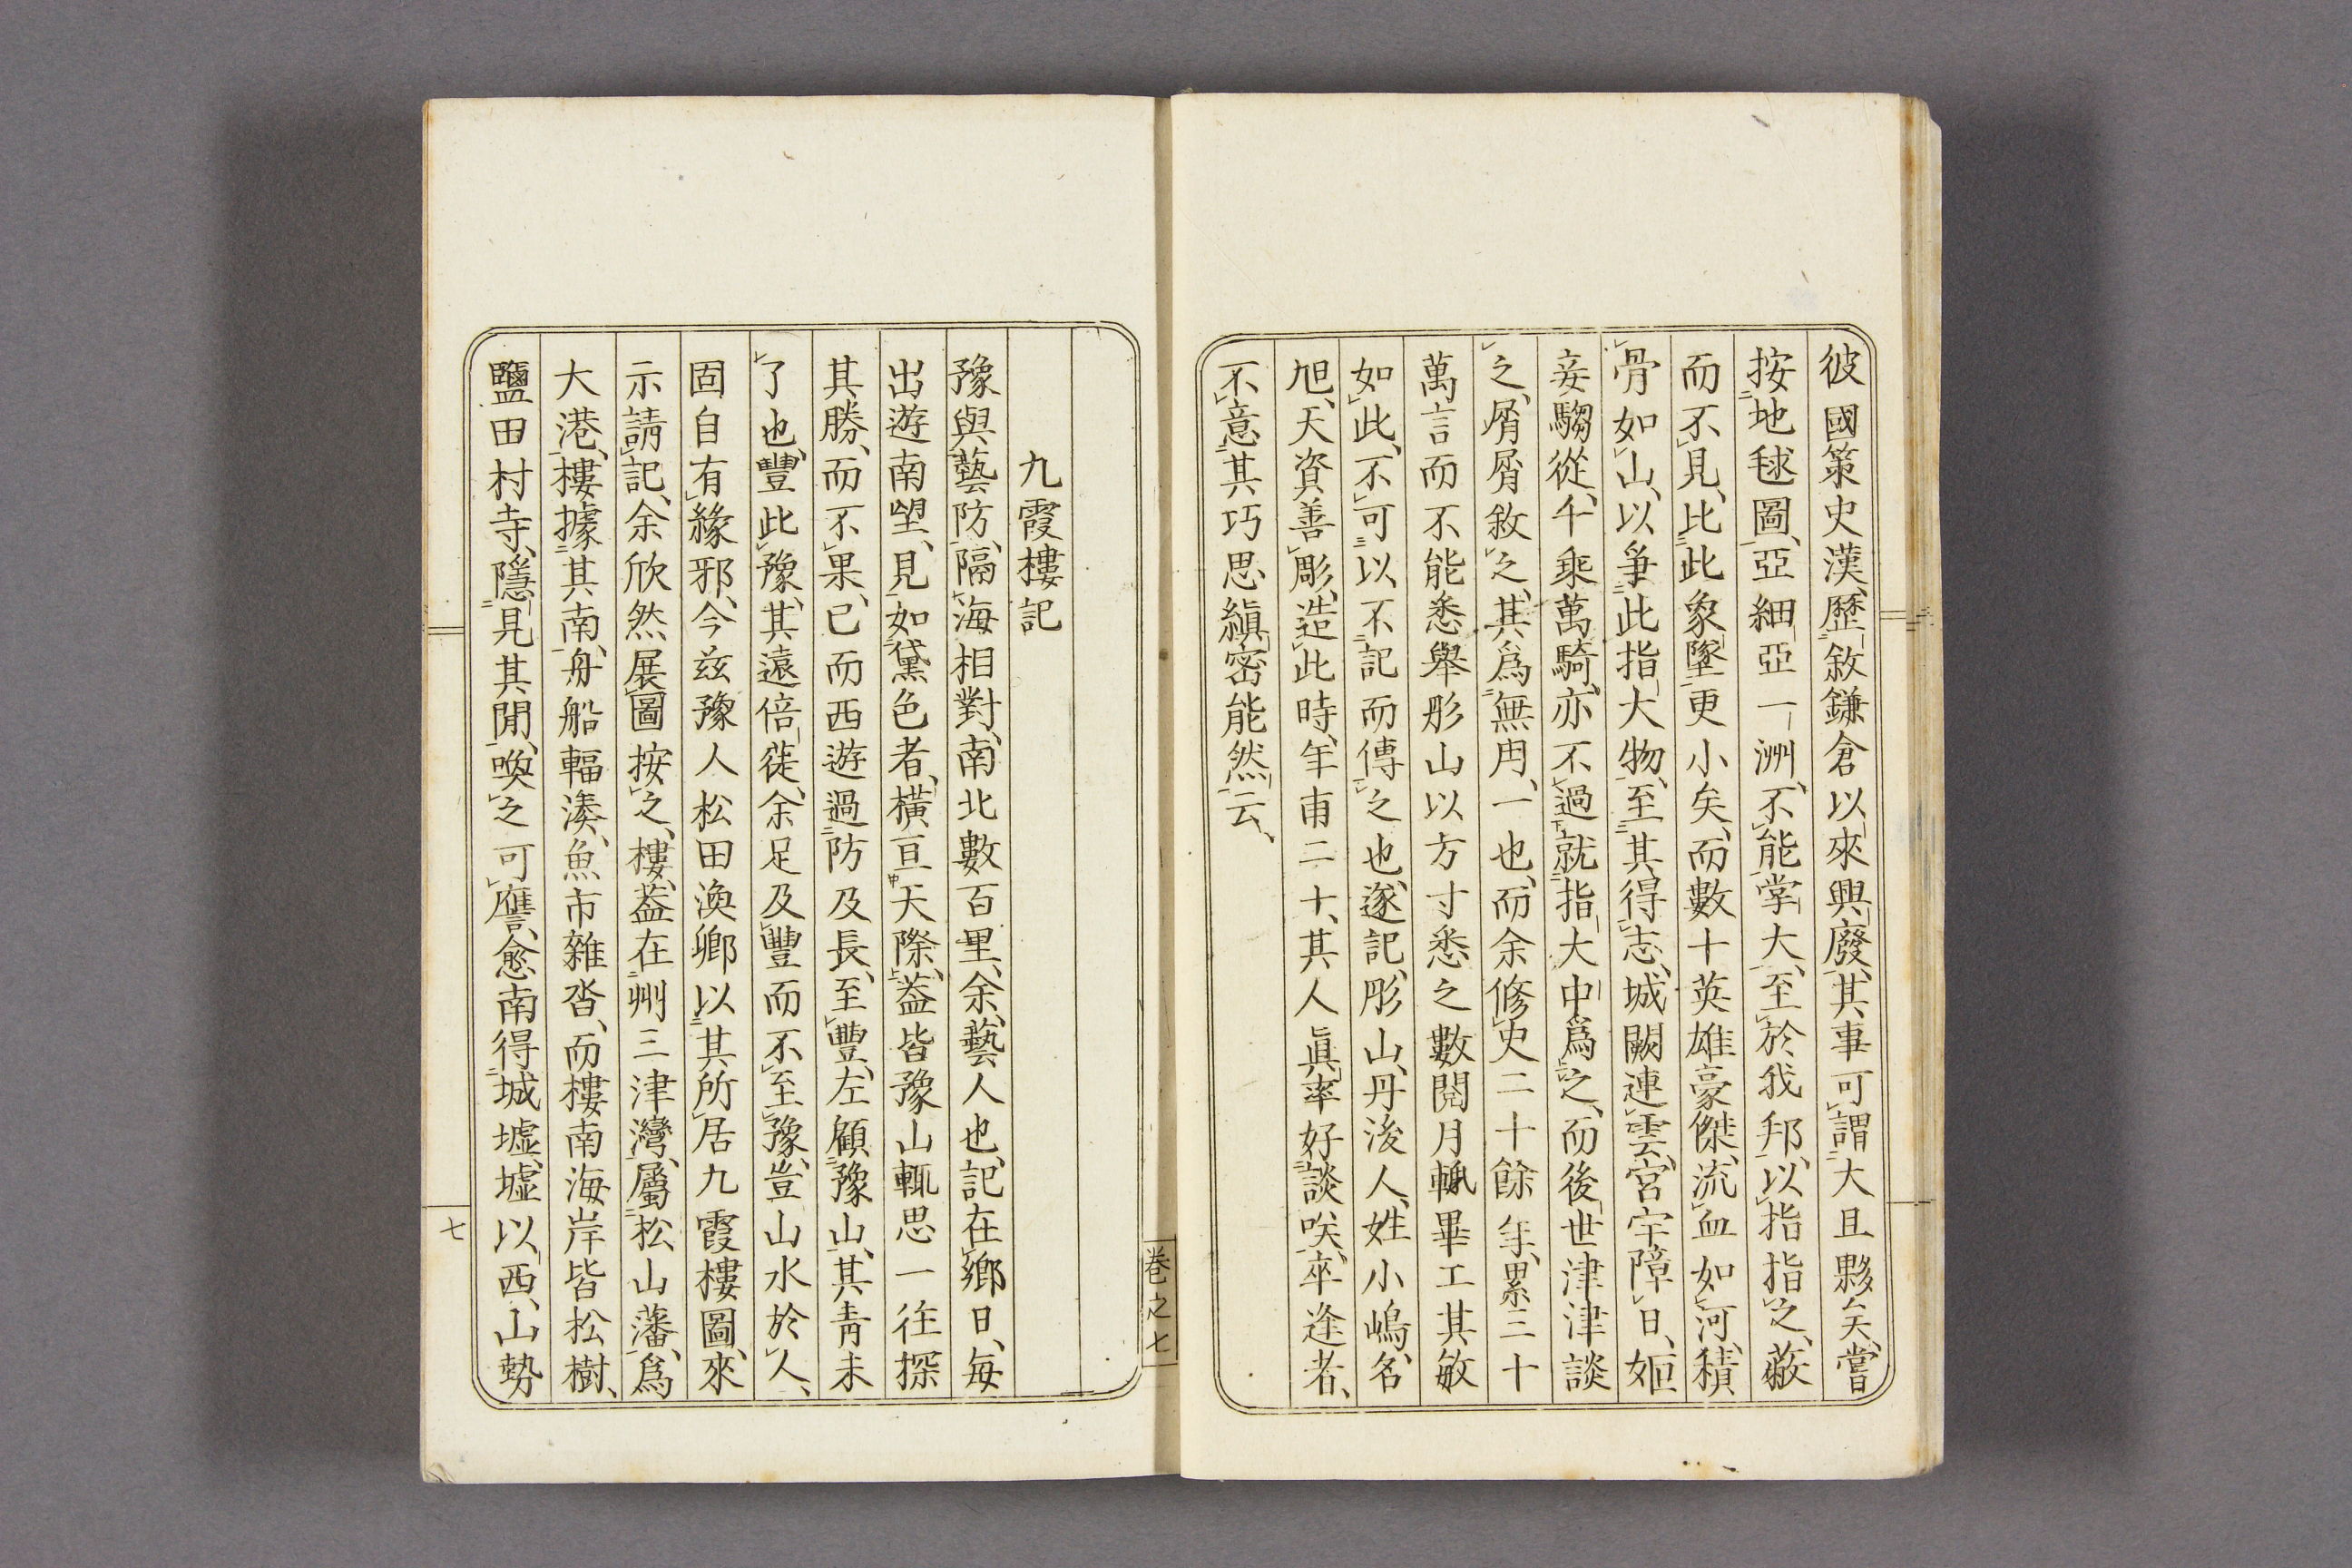 彼國策史漢、歷敘鎌倉以來興廢、其事可謂大且夥矣、嘗
按地毬圖、亞細亞一洲、不能掌大、至於我邦、以指指之、蔽
而不見、比此象墜更小矣、而數十英雄豪傑、流血如河、積
骨如山、以爭此指大物、至其得志、城闕連雲、宮宇障日、姬
妾騶從、千乘萬騎、亦不過就指大中爲之、而後世津津談
之、屑屑敘之、其爲無用、一也、而余修史二十餘年、累三十
萬言而不能悉舉彤山以方寸悉之數閱月輒畢工其敏
如此、不可以不記而傳之也、遂記、彤山、丹後人、姓小嶋、名
旭、天資善彫、造此時、年甫二十、其人眞率好談咲、卒逢者、
不意其巧思縝密能然云、
卷之七
九霞樓記
豫與藝防、隔海相對、南北數百里、余藝人也、記在鄉日、每
出遊南望、見如黛色者、橫亘天際、蓋皆豫山輒思一往探
其勝、而不果、已而西遊過防及長、至豐、左顧豫山、其靑未
了也、豐此豫、其遠倍蓰、余足及豐而不至豫、豈山水於人、
固自有緣邪、今茲豫人松田渙鄉以其所居九霞樓圖、來
示請記、余欣然展圖按之、樓蓋在州三津灣、屬松山藩、爲
大港、樓據其南、舟船輻湊、魚市雜沓、而樓南海岸皆松樹、
鹽田村寺、隱見其閒、喚之可譍、愈南得城墟、墟以西、山勢
七